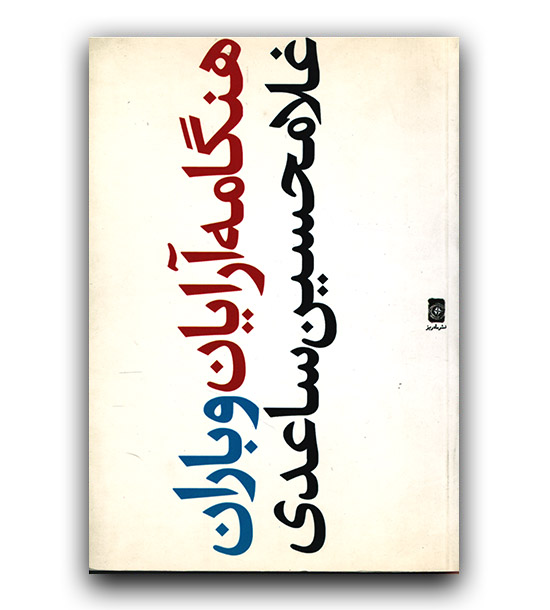 هنگامه‌آرایان و باران
غلامحسین ساعدی
نشر شهریز